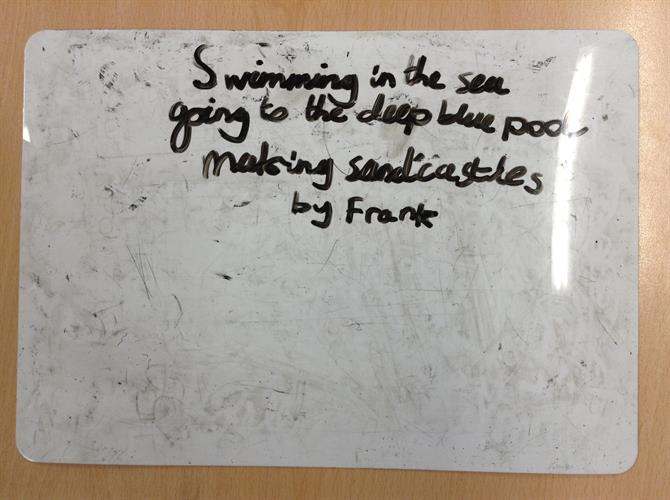 Swimming in the sea
going to the deep blue pool
making sandcastles
by Frank